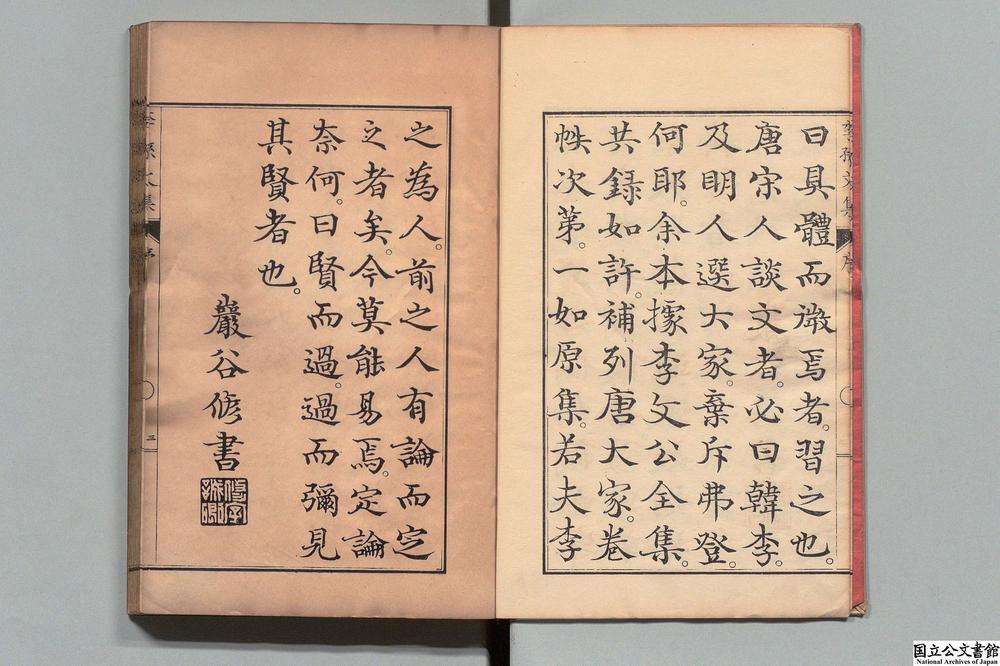 曰具體而微焉者。習之也。
唐宋人談文者。必曰韓李。
及明人選大家。棄斥弗登。
何耶。余本據李文公全集。
共錄如許。補列唐大家。卷
帙次第。一如原集。若夫李
之為人。前之人有論而定
之者矣。今莫能易焉。定論
奈何。曰賢而過。過而彌見
其賢者也。
巖谷修書
三
国立公文書館
National Archives of Japan